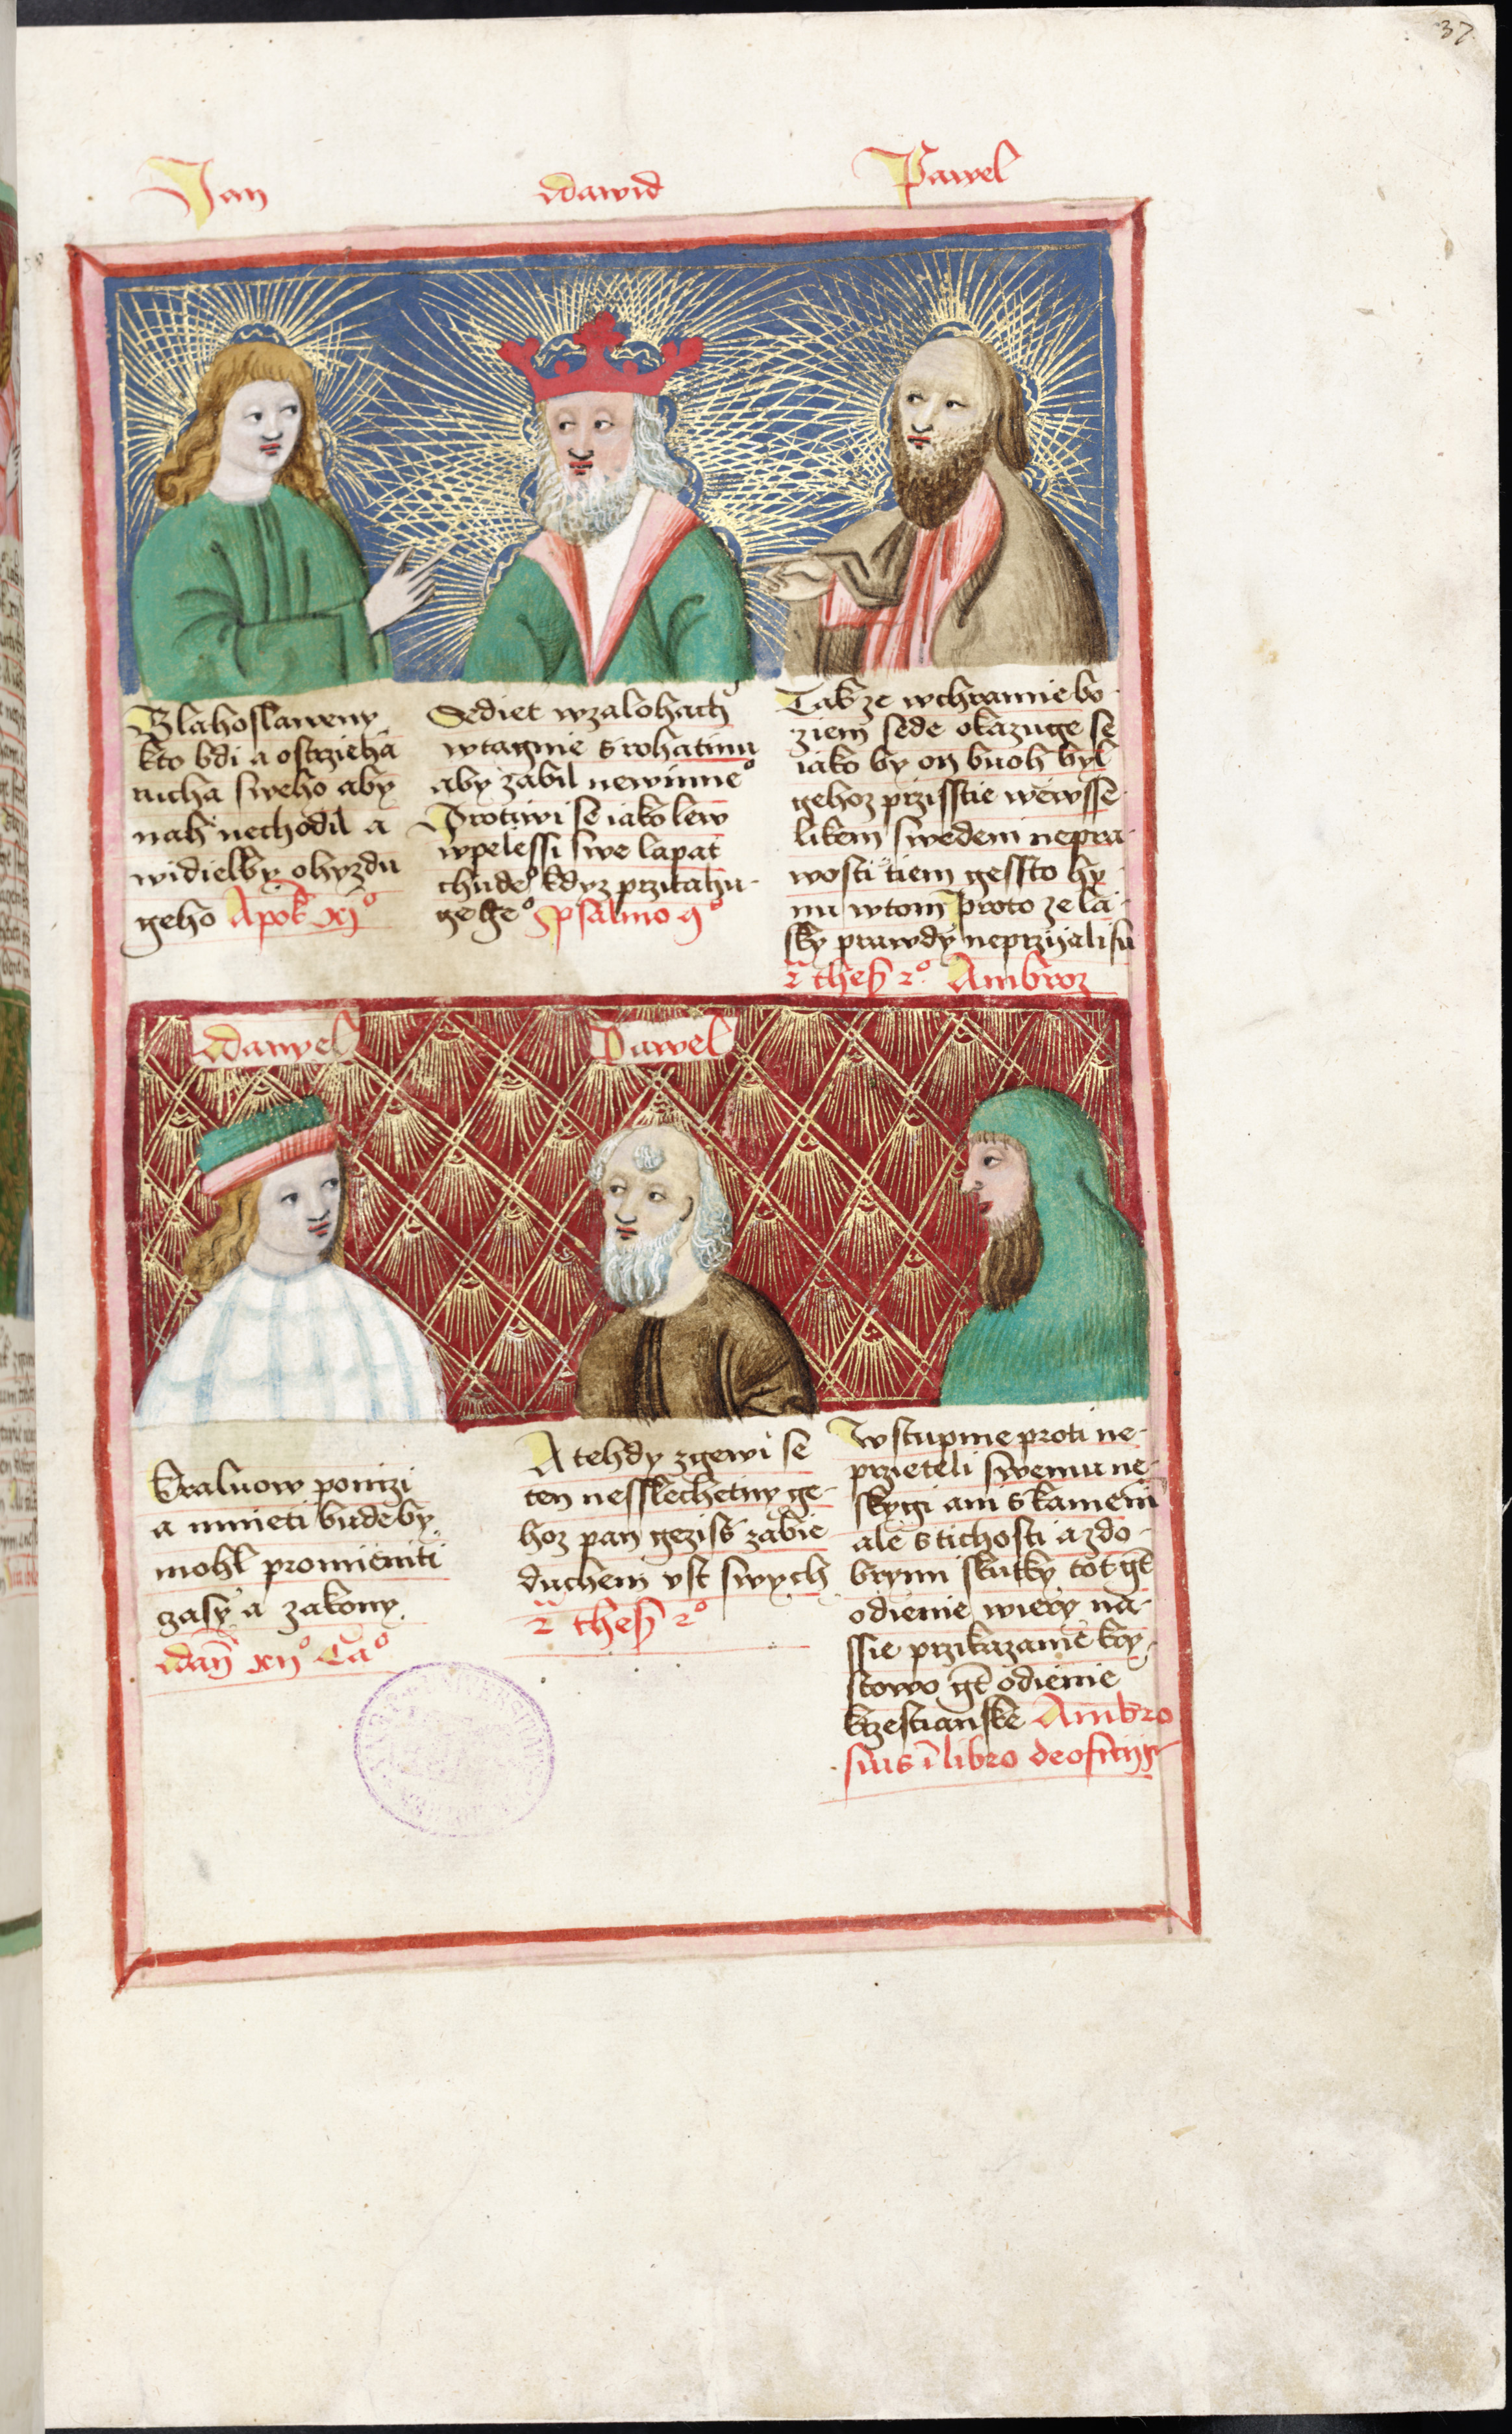 37
Jan
Dawid
Pawel
Blahoslaweny
kto bdi a ostrzieha
rucha sweho aby
nah nechodil a
widielby ohyzdu
geho Apok̄ xvj°
Sediet wzalohach
wtagnie s rohatinu
aby zabil newinne°
Protiwi se iako lew
wpelessi swe lapat
chude° kdyz przitahu-
ge ge° psalmo 9°
Takze wchramie bo-
ziem sede okazuge se
iako by on buoh byl
gehoz przisstie wewsse-
likem swedeni nepra-
wosti tiem gessto hy-
nu wtom Proto ze la-
sky prawdy neprzijali su
2ª thes̄ 2° Ambroz
Daniel
Pawel
Kraluow ponizi
a mnieti bude by
mohl promieniti
gasy a zakony
Dan̄ xij° Ca°
A tehdy zgewi se
ten nesslechetny ge-
hoz pan gezis zabie
duchem vst swych
2ª thes̄ 2°
Wstupme proti ne-
przieteli swemu ne-
skygi ani s kameni
ale s tichosti a zdo-
brymi skutky tot gt̄
odienie wiery na-
ssie przikazanie kry-
stowo gt̄ odienie
krzestianske Ambro
sius ī libro de officijs